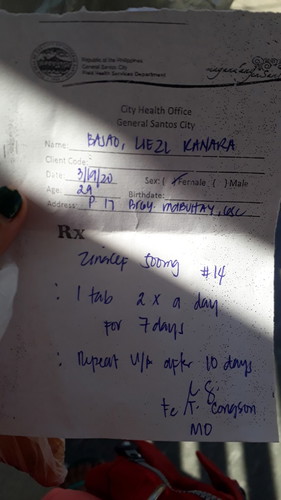 Republic of the Philippines
General Santos City
Field Health Services Department
City Health Office
General Santos City
Name: LIEZL KANARA
Client Code:
Date: 3/19/20 Sex: (✓) Female ( ) Male
Age: 29 Birthdate:
Address: P 17 BRGY. MABUHAY, GSC
Rx
Zinacef 500mg #14
: 1 tab 2 x a day
for 7 days
: Repeat U/A after 10 days
MD